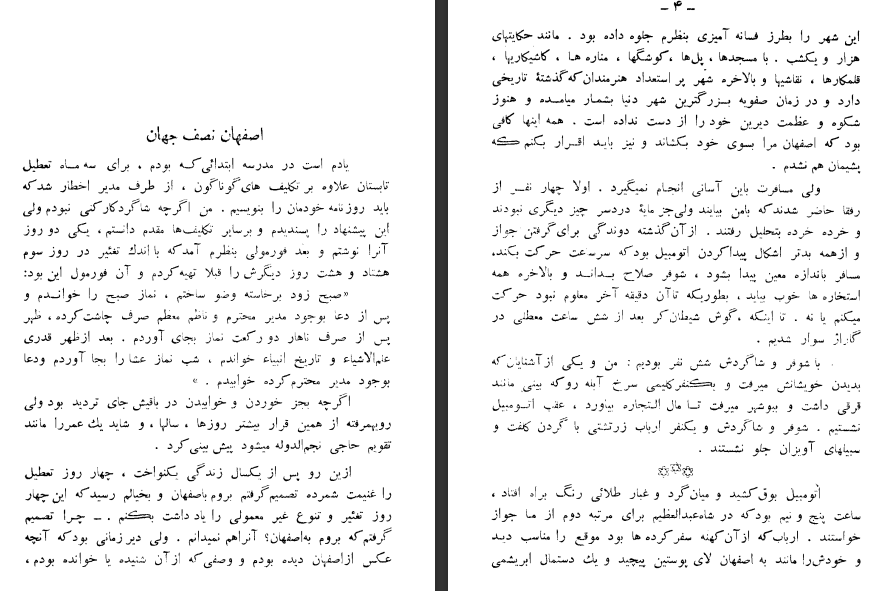 اصفهان نصف جهان
یادم است در مدرسه ابتدائی‌که بودم ، برای سه ماه تعطیل
تابستان علاوه بر تکلیف های‌گوناگون ، از طرف مدیر اخطار شدکه
باید روزنامه خودمان را بنویسیم . من اگرچه شاگردکارکنی نبودم ولی
این پیشنهاد را پسندیدم و برسایر تکلیف‌ها مقدم دانستم ، یکی دو روز
آنرا نوشتم و بعد فورمولی بنظرم آمدکه با اندك تغئیر در روز سوم
هشتاد و هشت روز دیگرش را قبلا تهیه‌کردم و آن فورمول این بود:
«صبح زود برخاسته وضو ساختم ، نماز صبح را خوانـدم و
پس از دعا بوجود مدیر محترم و ناظم معظم صرف چاشت‌کرده ، ظهر
پس از صرف ناهار دو رکعت نماز بجای آوردم . بعد ازظهر قدری
علم‌الاشیاء و تاریخ انبیاء خواندم ، شب نماز عشا را بجا آوردم ودعا
بوجود مدیر محترم‌کرده خوابیدم . »
اگرچه بجز خوردن و خوابیدن در باقیش جای تردید بود ولی
رویهمرفته از همین قرار بیشتر روزها ، سالها ، و شاید یك عمررا مانند
تقویم حاجی نجم‌الدوله میشود پیش بینی‌کرد .
ازین رو پس از یکسال زندگی یکنواخت ، چهار روز تعطیل
را غنیمت شمرده تصمیم‌گرفتم بروم باصفهان و بخیالم رسیدکه این چهار
روز تغئیر و تنوع غیر معمولی را یاد داشت بکنم . ــ چـرا تصمیم
گرفتم‌که بروم به‌اصفهان؟ آنراهم نمیدانم . ولی دیر زمانی بودکه آنچه
عکس ازاصفهان دیده بودم و وصفی‌که از آن شنیده یا خوانده بودم ،
ــ ۴ ــ
این شهر را بطرز فسانه آمیزی بنظرم جلوه داده بود . مانند حکایتهای
هزار و یکشب . با مسجدها ، پل‌ها ،کوشگها ، مناره هـا ، کاشیکاریها ،
قلمکارها ، نقاشیها و بالاخره شهر پر استعداد هنرمندان‌که گذشتهٔ تاریخی
دارد و در زمان صفویه بـزرگترین شهر دنیا بشمار میامـده و هنوز
شکوه و عظمت دیرین خود را از دست نداده است . همه اینها کافی
بود که اصفهان مرا بسوی خود بکشاند و نیز بایـد اقـرار بکنم‌کـه
پشیمان هم نشدم .
ولی مسافرت باین آسانی انجـام نمیگیرد . اولا چهار نفـر از
رفقا حاضر شدندکه بامن بیایند ولی‌جز مایهٔ دردسر چیز دیگری نبودند
و خرده خرده بتحلیل رفتند . ازآن‌گذشته دوندگی برای‌گرفتن جواز
و ازهمه بدتر اشکال پیداکردن اتومبیل بودکه سرساعت حرکت بکند،
مسافر باندازه معین پیدا بشود ، شوفر صلاح بـدانـد و بالاخره همه
استخاره ها خوب بیاید ، بطوریکه تاآن دقیقه آخر معلوم نبود حرکت
میکنم یا نه . تا اینکه ،گوش شیطان‌کر بعد از شش ساعت معطلی در
گاراژ سوار شدیم .
با شوفر و شاگردش شش نفر بودیم : من و یکی از آشنایان‌که
بدیدن خویشانش میرفت و یکنفرکلیمی سرخ آبله روکه بینی مانند
قرقی داشت و ببوشهر میرفت تـا مال التجاره بیاورد ، عقب اتـومبیل
نشستیم . شوفر و شاگردش و یکنفر ارباب زرتشتی با گردن کلفت و
سبیلهای آویزان جلو نشستند .
اتومبیل بوق‌کشید و میان‌گرد و غبار طلائی رنگ براه افتاد ،
ساعت پنج و نیم بودکه در شاه‌عبدالعظیم برای مرتبه دوم از مـا جواز
خواستند . ارباب‌که از آن‌کهنه سفرکرده ها بود موقع را مناسب دیـد
و خودش‌را مانند به اصفهان لای پوستین پیچید و یك دستمال ابریشمی